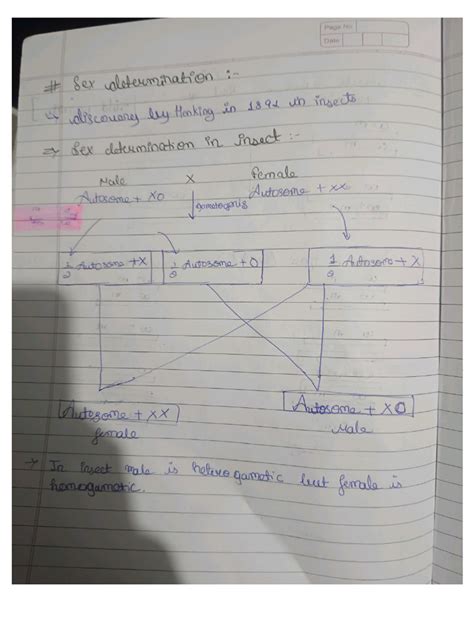 Page No.
Date
# Sex determination :-
↳ discovery by Henking in 1891 in insects
⇒ Sex determination in insect :-
Male X female
Autosome + XO Autosome + xx
gametogenis
1/2 Autosome + X 1/2 Autosome + O 1/2 Autosome + X
Autosome + XX Autosome + XO
female Male
→ In insect male is heterogametic but female is
homogametic.